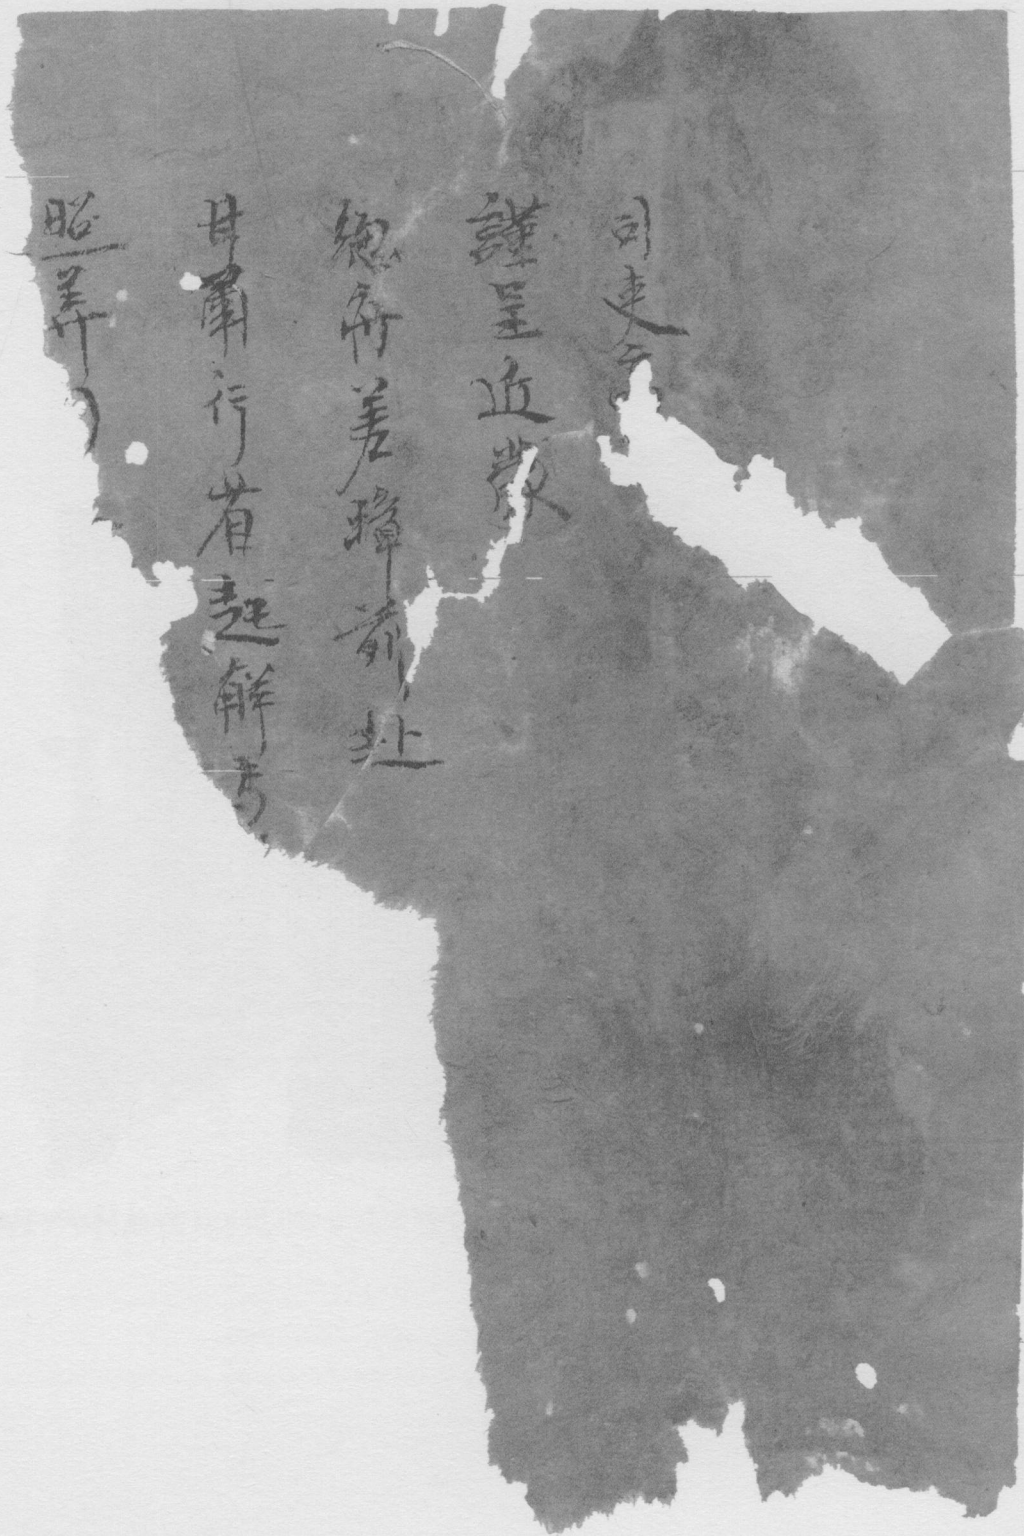 司吏
謹呈近蒙
總府差璋前赴
甘肅行省起解
照算